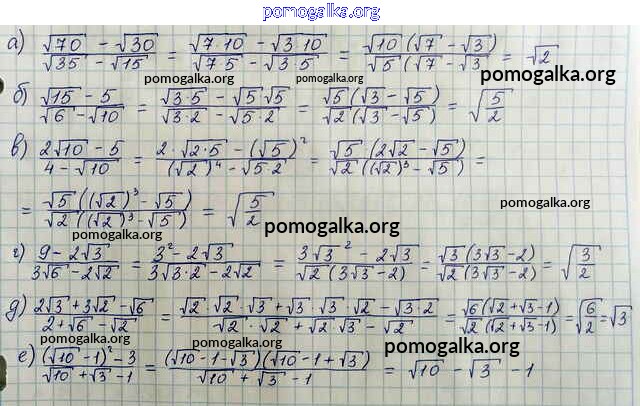 pomogalka.org
а) (√70 - √30)/(√35 - √15) = (√7·10 - √3·10)/(√7·5 - √3·5) = (√10 (√7 - √3))/(√5 (√7 - √3)) = √2
pomogalka.org pomogalka.org
б) (√15 - 5)/(√6 - √10) = (√3·5 - √5 √5)/(√3·2 - √5·2) = (√5 (√3 - √5))/(√2 (√3 - √5)) = √(5/2)
pomogalka.org pomogalka.org
в) (2√10 - 5)/(4 - √10) = (2·√2·5 - (√5)²)/((√2)⁴ - √5·2) = (√5 (2√2 - √5))/(√2 ((√2)³ - √5)) =
= (√5 ((√2)³ - √5))/(√2 ((√2)³ - √5)) = √(5/2)
pomogalka.org
pomogalka.org
pomogalka.org
г) (9 - 2√3)/(3√6 - 2√2) = (3² - 2√3)/(3√3·2 - 2√2) = (3√3² - 2√3)/(√2 (3√3 - 2)) = (√3 (3√3 - 2))/(√2 (3√3 - 2)) = √(3/2)
д) (2√3 + 3√2 - √6)/(2 + √6 - √2) = (√2·√2·√3 + √3·√3·√2 - √3·2)/(√2·√2 + √2·√3 - √2) = (√6 (√2 + √3 - 1))/(√2 (√2 + √3 - 1)) = √(6/2) = √3
pomogalka.org pomogalka.org pomogalka.org
е) ((√10 - 1)² - 3)/(√10 + √3 - 1) = ((√10 - 1 - √3)(√10 - 1 + √3))/(√10 + √3 - 1) = √10 - √3 - 1